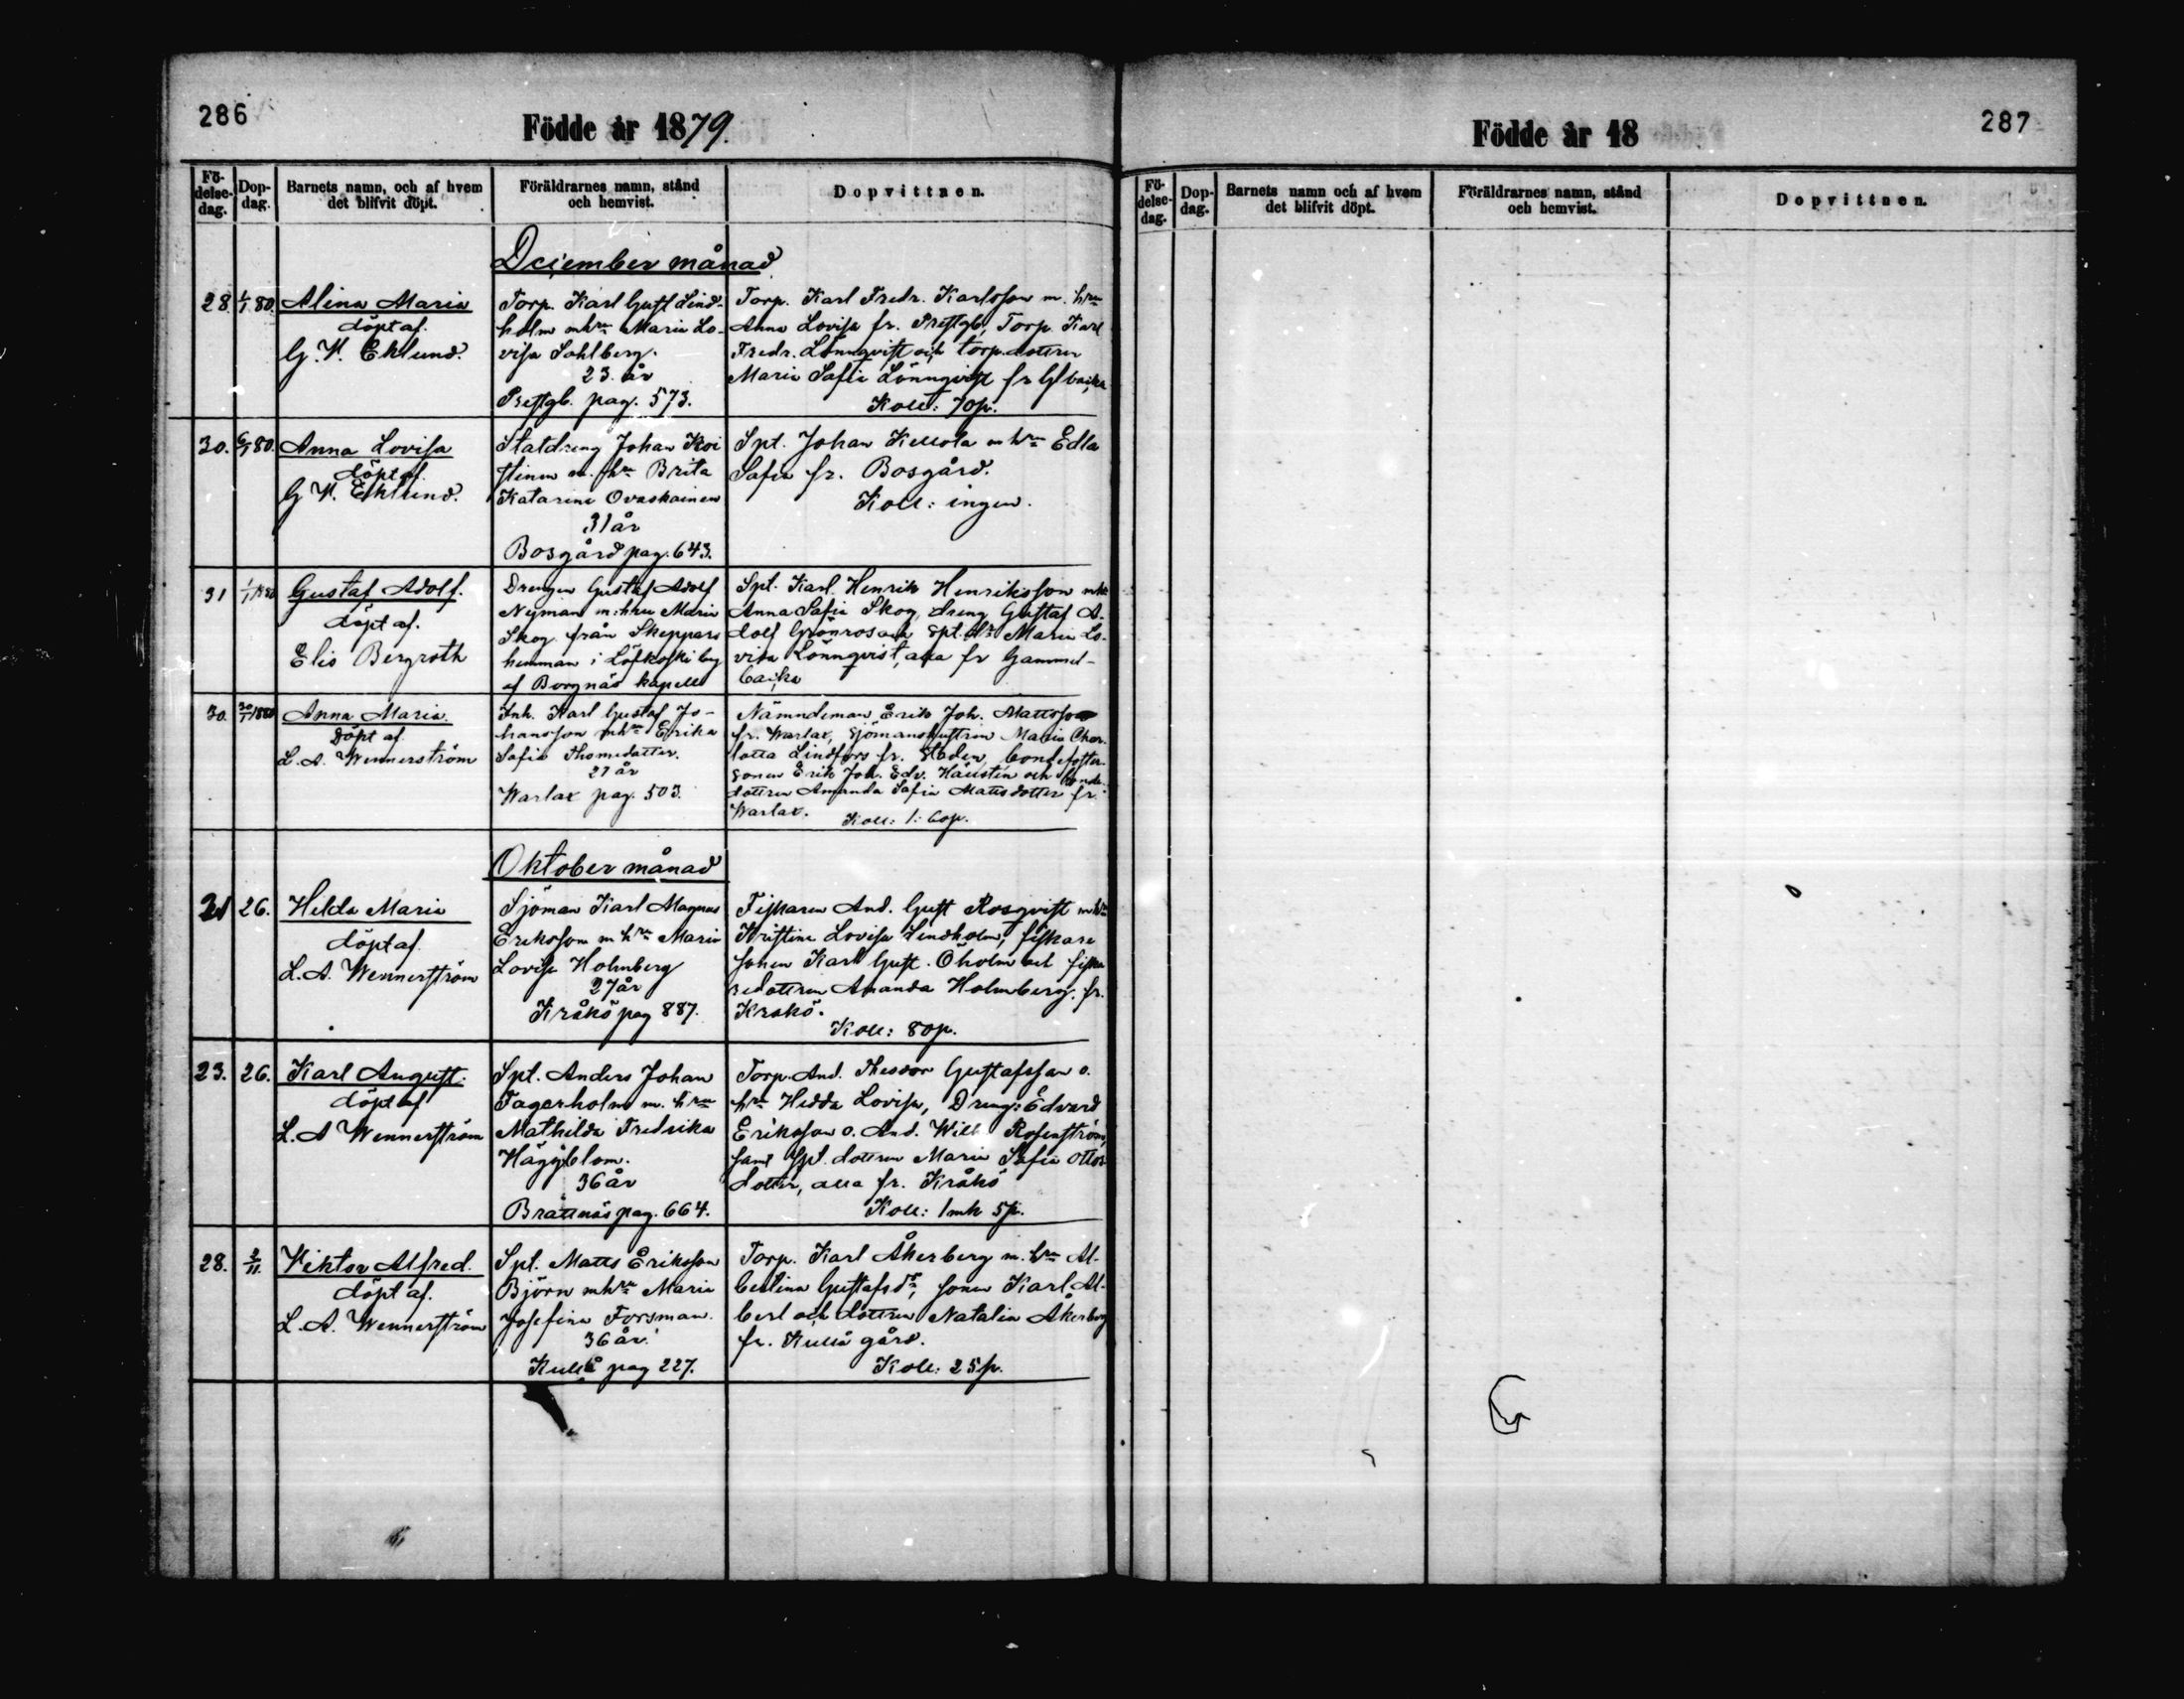 286
Födde år 1879.
Fö-
delse-
dag.
Dop-
dag.
Barnets namn, och af hvem
det blifvit döpt.
Föräldrarnes namn, stånd
och hemvist.
Dopvittnen.
December månad
28. 80. Alina Maria
döpt af
G. W. Eklund.
Torp. Karl Gust Lind-
holm m hru Maria Lo-
visa Sahlberg.
23 år
Prestgb. pag. 573.
Torp. Karl Fredr. Karlsson m. hru
Anna Lovisa fr. Prestgb, Torp. Karl
Fredr. Lönnqvist och torp.dottren
Maria Sofia Lönnqvist fr Gl backa
Koll: 70p.
30. 6/1 80. Anna Lovisa
döpt af
G W. Eklund.
Statdreng Johan Koi
stinen m. hru Brita
Katarina Ovaskainen
31 år
Bosgård pag. 643.
Spt. Johan Kellola m hru Edla
Sofia fr. Bosgård.
Koll: ingen.
31 1/1 1880 Gustaf Adolf.
döpt af.
Elis Bergroth
Drengen Gustaf Adolf
Nyman m: hru Maria
Skog från Skeppars
hemman i Löfkoski by
af Borgnäs kapell
Spt. Karl Henrik Henriksson m hr
Anna Sofia Skog, dreng Gustaf A-
dolf Grönros och spt. dr Maria Lo-
visa Lönnqvist, alla fr Gammel-
backa
30. 1880 Anna Maria
Döpt af
L. A. Wennerström
Inh. Karl Gustaf Jo-
hansson m hru Erika
Sofia Thomedotter.
27 år
Warlax pag. 503.
Nämndeman Erik Joh. Mattsson
fr. Warlax, Sjömanshustrun Maria Char-
lotta Lindfors fr. Staden, bondefoster-
sonen Erik Joh. Edv. och bonde-
dottren Amanda Sofia Mattsdotter fr.
Warlax.
Koll: 1: 60p.
Oktober månad
21 26. Hilda Maria
döpt af
L. A. Wennerström
Sjöman Karl Magnus
Eriksson m hru Maria
Lovisa Holmberg
27 år
Kråkö pag 887.
Fiskaren And. Gust Rosqvist m hru
Kristina Lovisa Lindholm, fiskare
sonen Karl Gust. Öholm och fiska
redottren Amanda Holmberg. fr.
Kråkö.
Koll: 80p.
23. 26. Karl August.
döpt af
L. A Wennerström
Spt. Anders Johan
Fagerholm m. hru
Mathilda Fredrika
Häggblom.
36 år
Brattnäs pag. 664.
Torp. And. Theodor Gustafsson o.
hru Hedda Lovisa, Dreng: Edvard
Eriksson o. And. Wilh Rosenström,
samt Spt. dottren Maria Sofia Ottos
dotter, alla fr. Kråkö
Koll: 1mk 5p.
28. 2/11. Viktor Alfred.
döpt af.
L. A. Wennerström
Spt. Matts Eriksson
Björn m hru Maria
Josefina Forsman.
36 år.
Kullå pag 227.
Torp. Karl Åkerberg m. hru Al-
bertina Gustafsdr, sonen Karl Al-
bert och dottren Natalia Åkerberg
fr. Kullå gård.
Koll: 25p.
287
Födde år 18
Fö-
delse-
dag.
Dop-
dag.
Barnets namn och af hvem
det blifvit döpt.
Föräldrarnes namn, stånd
och hemvist.
Dopvittnen.